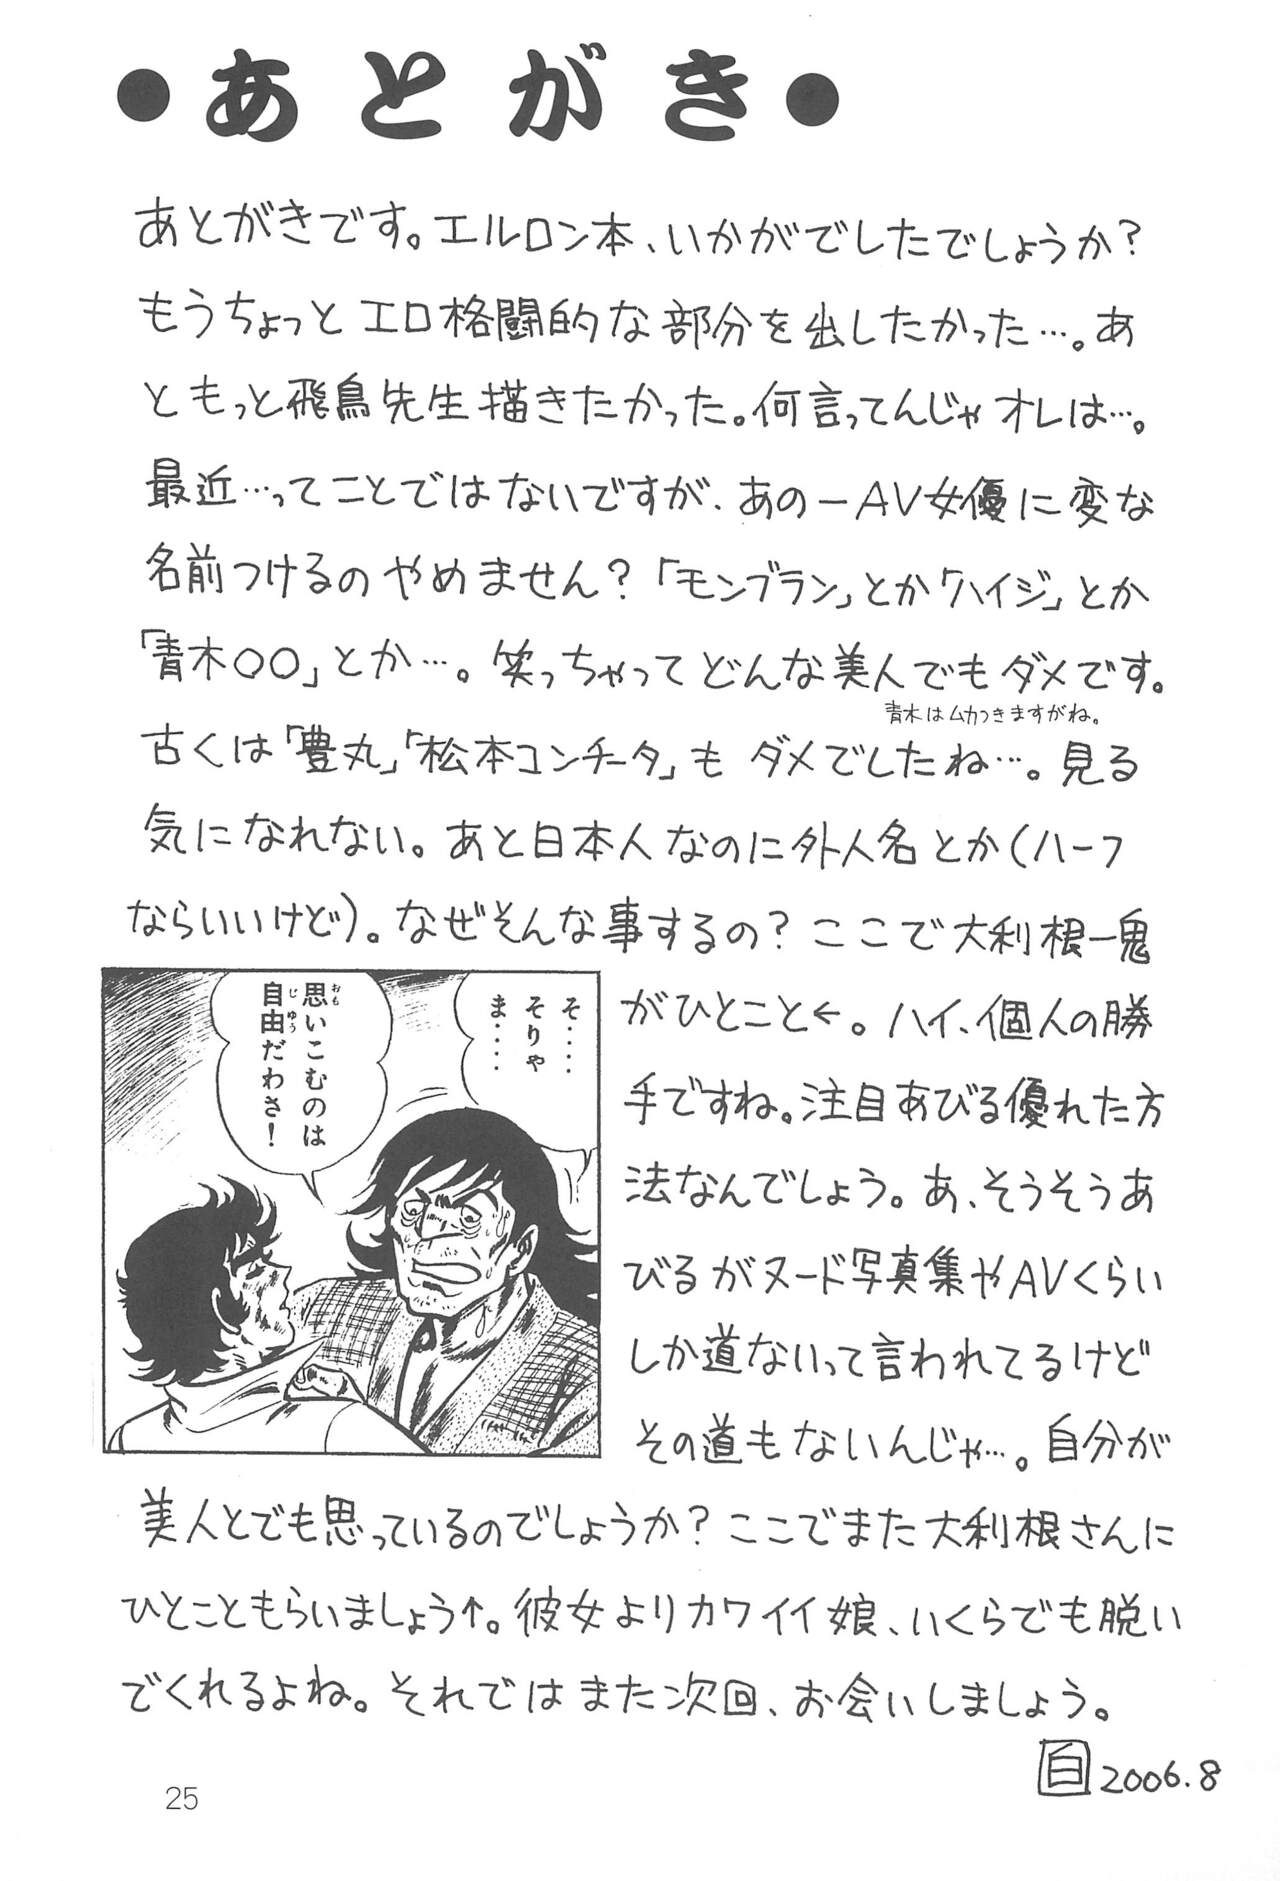 ●あとがき●
あとがきです。エルロン本、いかがでしたでしょうか?
もうちょっとエロ格闘的な部分を出したかった…。あ
ともっと飛鳥先生描きたかった。何言ってんじゃオレは…。
最近…ってことではないですが、あの－AV女優に変な
名前つけるのやめません?「モンブラン」とか「ハイジ」とか
「青木○○」とか…。笑っちゃってどんな美人でもダメです。
青木はムカつきますがね。
古くは「豊丸」「松本コンチータ」もダメでしたね…。見る
気になれない。あと日本人なのに外人名とか(ハーフ
ならいいけど)。なぜそんな事するの?ここで大利根一鬼
がひとこと←。ハイ、個人の勝
手ですね。注目あびる優れた方
法なんでしょう。あ、そうそうあ
びるがヌード写真集やAVくらい
しか道ないって言われてるけど
その道もないんじゃ…。自分が
美人とでも思っているのでしょうか?ここでまた大利根さんに
ひとこともらいましょう↑。彼女よりカワイイ娘、いくらでも脱い
でくれるよね。それではまた次回、お会いしましょう。
そ‥‥
そりゃ
ま‥‥
思いこむのは
おも
自由だわさ!
じゆう
白 2006.8
25